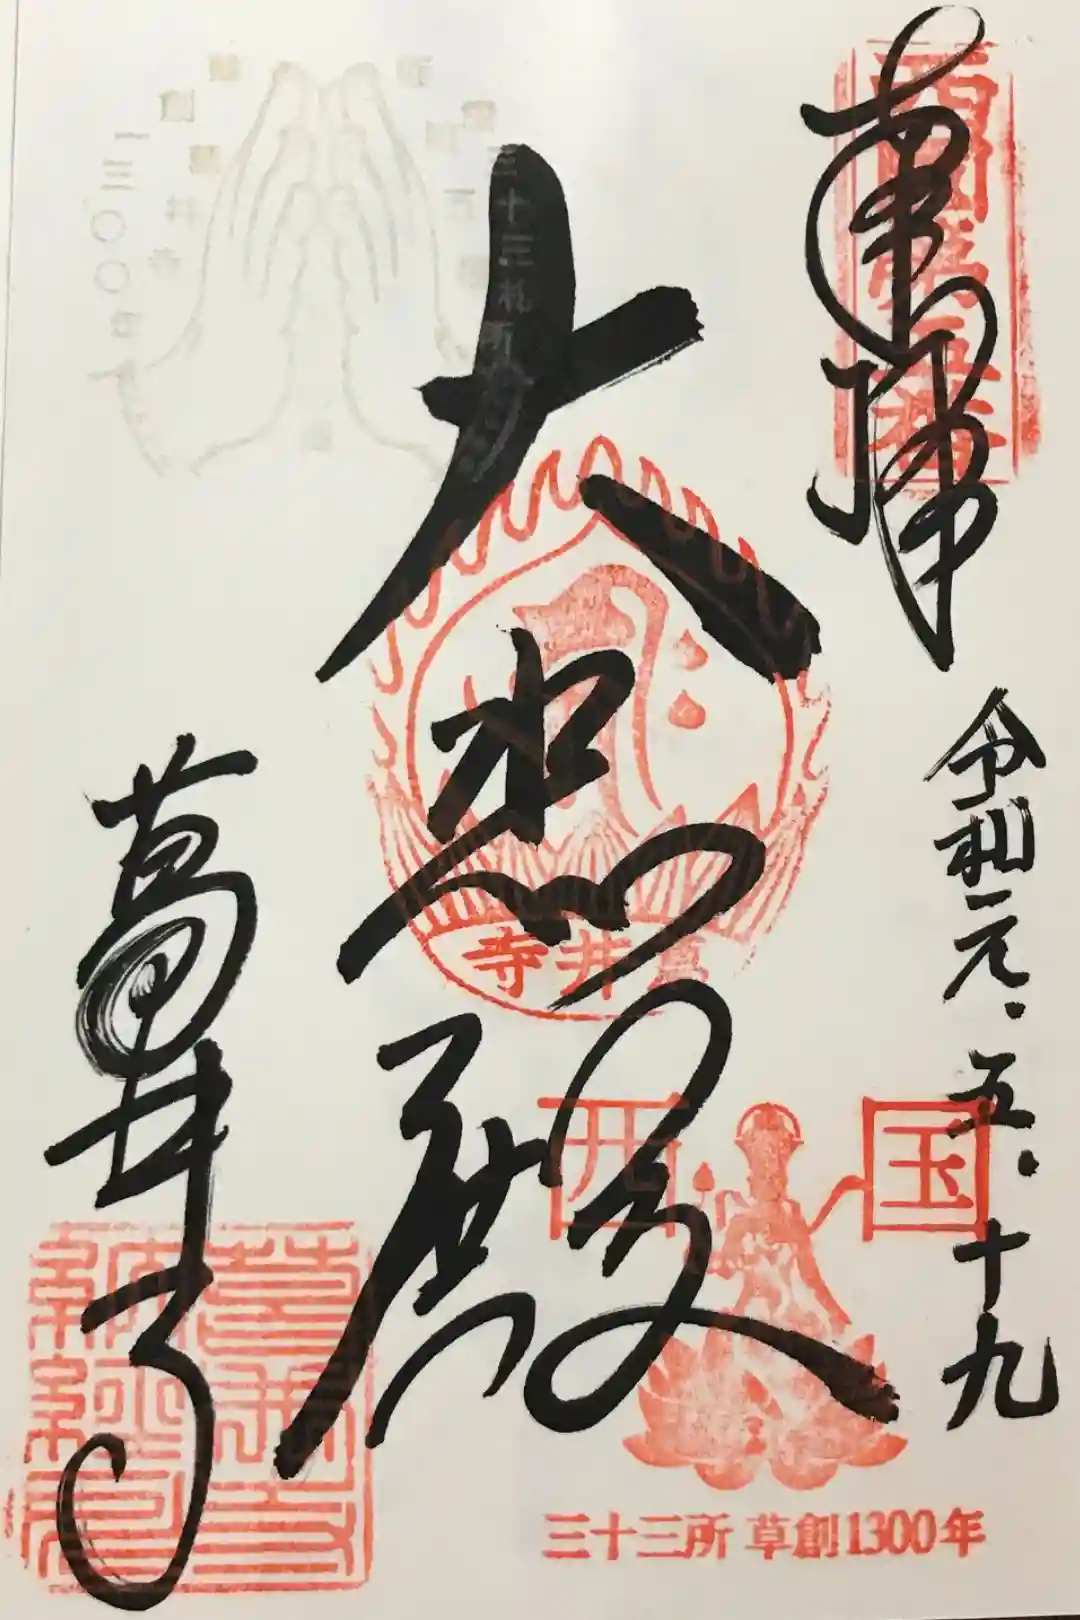 奉拝
西国第五番
令和元.五.十九
大悲殿
葛井寺
葛井寺
西国
三十三所 草創1300年
一三〇〇年
三十三札所